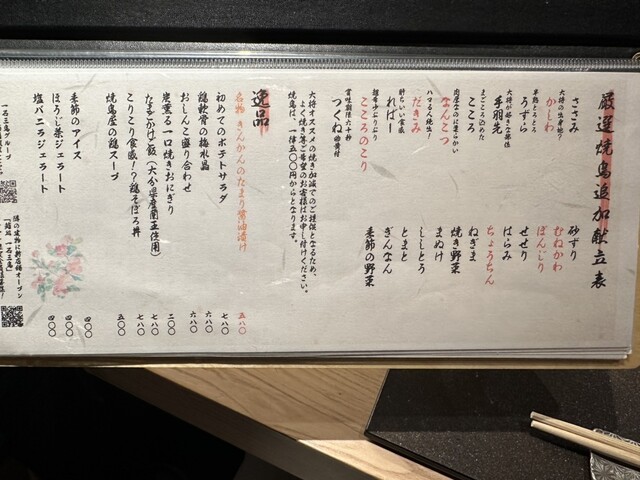 厳選焼鳥追加献立表
ささみ
大将の出身地?
かしわ
半熟とろとろ
うずら
大将が好きな部位
手羽先
まごころこめた
こころ
肉屋なのに柔らかい
なんこつ
ハマる人続出!
だきみ
軽やかな食感
ればー
脂身少ぷりぷり
こころのこり
賞味期限六十秒
つくね
砂ずり
むねかわ
ぼんじり
せせり
はらみ
ちょうちん
ねぎま
焼き野菜
まぬけ
ししとう
とまと
ぎんなん
季節の野菜
大将オススメの焼き加減でのご提供となるため、
よく焼き等ご希望のお客様はお申し付けください。
焼鳥は、一律五〇〇円からとなります。
逸品
名物 きんかんのたまり醤油漬け 五八〇
初めてのポテトサラダ 七八〇
鶏軟骨の梅水晶 六八〇
おしんこ盛り合わせ 六八〇
炭薫る一口焼きおにぎり 二〇〇
たまかけ飯(大分県産蘭王使用) 七八〇
こりこり食感!?鶏そぼろ丼 七八〇
焼鳥屋の鶏スープ 五〇〇
季節のアイス 四〇〇
ほうじ茶ジェラート 四〇〇
塩バニラジェラート 四〇〇
一石三鳥グループ
隣の建物に新店舗オープン